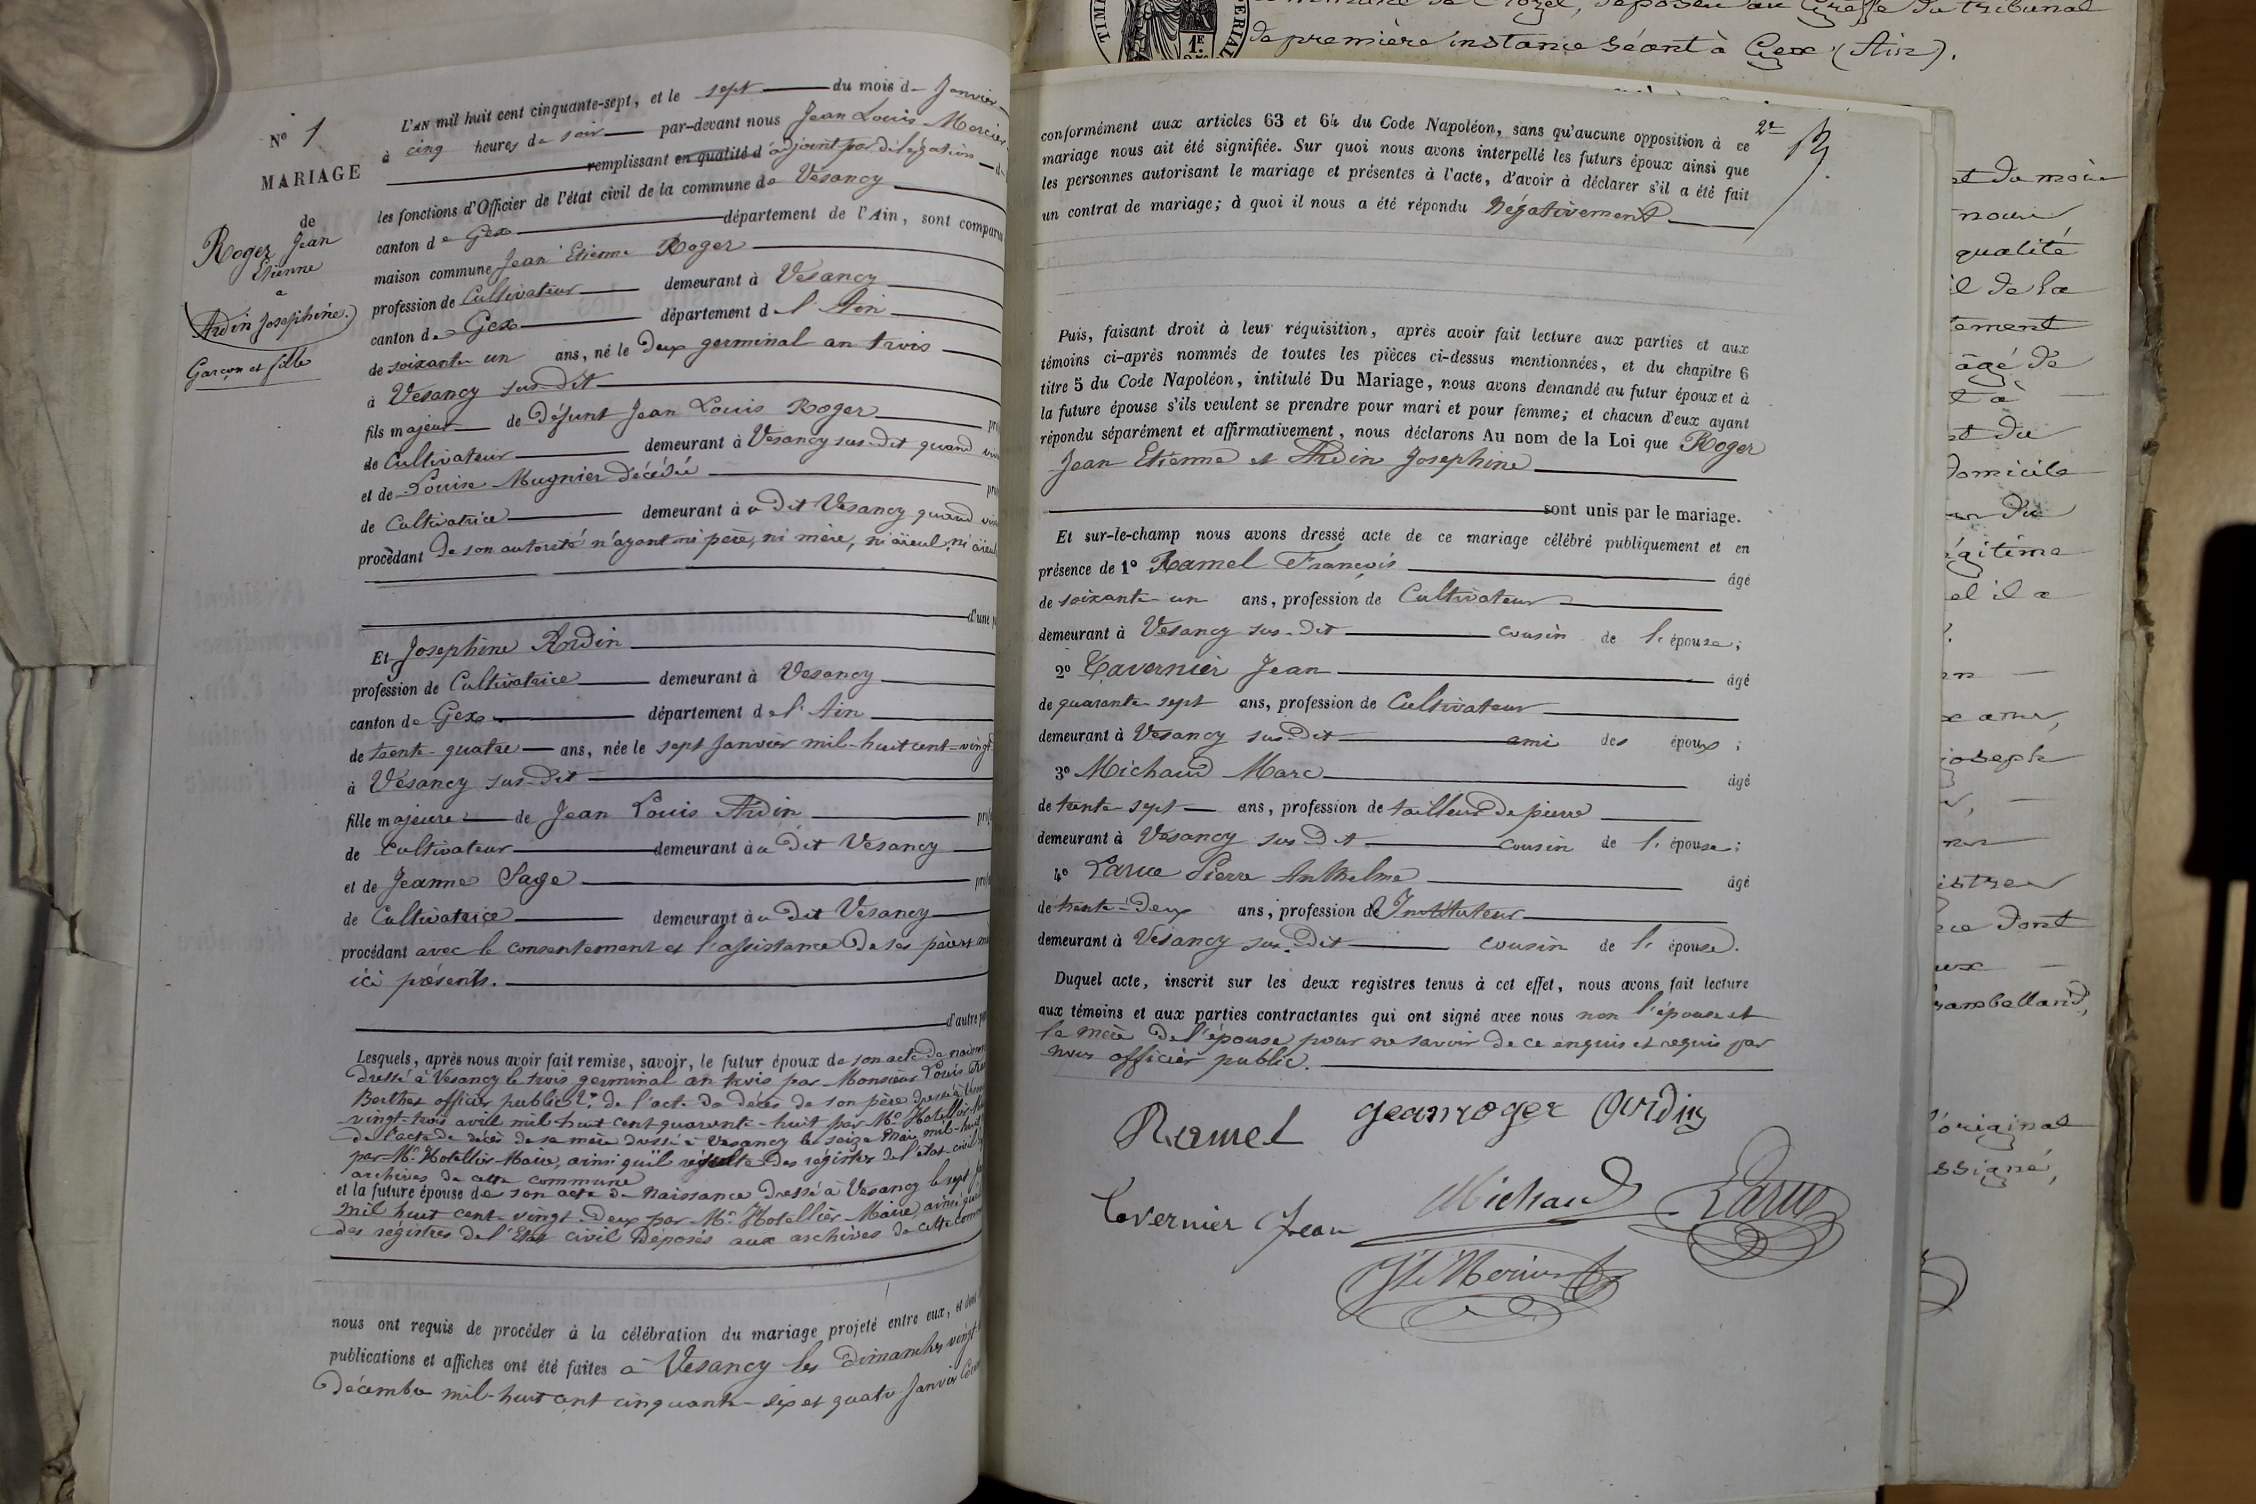 N° 1
MARIAGE
de
Roger Jean
Etienne
a
Ardin Josephine.
Garçon et fille
L'AN mil huit cent cinquante-sept, et le sept du mois d Janvier
à cinq heures de soir par-devant nous Jean Louis Mercier
remplissant en qualité d'adjoint par délégation d
les fonctions d'Officier de l'état civil de la commune de Vésancy
canton de Gex département de l'Ain, sont comparus
maison commune Jean Etienne Roger
profession de Cultivateur demeurant à Vésancy
canton de Gex département de l'Ain
de soixante un ans, né le deux germinal an trois
à Vésancy sus-dit
fils majeur de défunt Jean Louis Roger
de Cultivateur demeurant à Vésancy sus-dit quand
et de Louise Mugnier décédée
de Cultivatrice demeurant à u dit Vésancy quand
procédant de son autorité n'ayant ni père, ni mère, ni aïeul, ni
d'une
Et Josephine Ardin
profession de Cultivatrice demeurant à Vésancy
canton de Gex département de l'Ain
de trente-quatre ans, née le sept Janvier mil-huit cent-vingt
à Vésancy sus-dit
fille majeure de Jean Louis Ardin
de Cultivateur demeurant à u dit Vésancy
et de Jeanne Sage
de Cultivatrice demeurant à u dit Vésancy
procédant avec le consentement et l'assistance de ses père et
ici présents.
d'autre
Lesquels, après nous avoir fait remise, savoir, le futur époux de son acte de
dressé à Vésancy le trois germinal an trois par Monsieur Louis
Berthet officier public 2° de l'acte de décès de son père dressé à
vingt-trois avril mil-huit cent quarante-huit par Mr Hotellier
de l'acte de décès de sa mère dressé à Vésancy le seize Mai mil-huit
par Mr Hotellier Maire, ainsi qu'il résulte des régistres de l'état-civil
archives de cette commune
et la future épouse de son acte de Naissance dressé à Vésancy le sept
mil huit cent-vingt-deux par Mr Hotellier Maire, ainsi
des régistres de l'Etat civil déposés aux archives de cette
nous ont requis de procéder à la célébration du mariage projeté entre eux, et
publications et affiches ont été faites à Vésancy les dimanches vingt
décembre mil-huit cent cinquante-six et quatre Janvier
conformément aux articles 63 et 64 du Code Napoléon, sans qu'aucune opposition à ce
mariage nous ait été signifiée. Sur quoi nous avons interpellé les futurs époux ainsi que
les personnes autorisant le mariage et présentes à l'acte, d'avoir à déclarer s'il a été fait
un contrat de mariage; à quoi il nous a été répondu Négativement
Puis, faisant droit à leur réquisition, après avoir fait lecture aux parties et aux
témoins ci-après nommés de toutes les pièces ci-dessus mentionnées, et du chapitre 6
titre 5 du Code Napoléon, intitulé Du Mariage, nous avons demandé au futur époux et à
la future épouse s'ils veulent se prendre pour mari et pour femme; et chacun d'eux ayant
répondu séparément et affirmativement, nous déclarons Au nom de la Loi que Roger
Jean Etienne et Ardin Josephine
sont unis par le mariage.
Et sur-le-champ nous avons dressé acte de ce mariage célébré publiquement et en
présence de 1° Ramel François âgé
de soixante-un ans, profession de Cultivateur
demeurant à Vésancy sus-dit cousin de l'épouse;
2° Tavernier Jean âgé
de quarante-sept ans, profession de Cultivateur
demeurant à Vésancy sus-dit ami des époux;
3° Michaud Marc âgé
de trente-sept ans, profession de tailleur de pierre
demeurant à Vésancy sus-dit cousin de l'épouse;
4° Larue Pierre Anthelme âgé
de trente-deux ans, profession de Instituteur
demeurant à Vésancy sus-dit cousin de l'épouse.
Duquel acte, inscrit sur les deux registres tenus à cet effet, nous avons fait lecture
aux témoins et aux parties contractantes qui ont signé avec nous non l'épouse et
la mère de l'épouse pour ne savoir de ce enquis et requis par
nous officier public.
Ramel jean roger Ardin
Tavernier Jean Michaud Larue
de première instance séant à Gex (Ain).
TIMB
1.E
st du mois
qualité
il de la
tement
âgé de
à
domicile
égitime
el il a
joseph
ce dont
ux
rambelland,
l'original
ssigné,